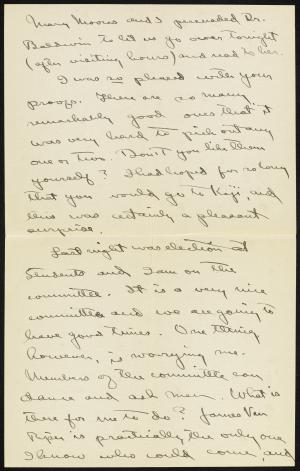 Mary Moores and I persuaded Dr.
Baldwin to let us go over tonight
(after visiting hours) and read to her.
I was so pleased with your
proofs. There are so many
remarkably good ones that it
was very hard to pick out any
one or two. Don't you like them
yourself? I had hoped for so long
that you would go to Kiji, and
this was certainly a pleasant
surprise.
Last night was election at
Students and I am on the
committee. It is a very nice
committee and we are going to
have good times. One thing
however, is worrying me.
Members of the committee can
dance and ask men. What is
there for me to do? James Van
Riper is practically the only one
I know who could come, and